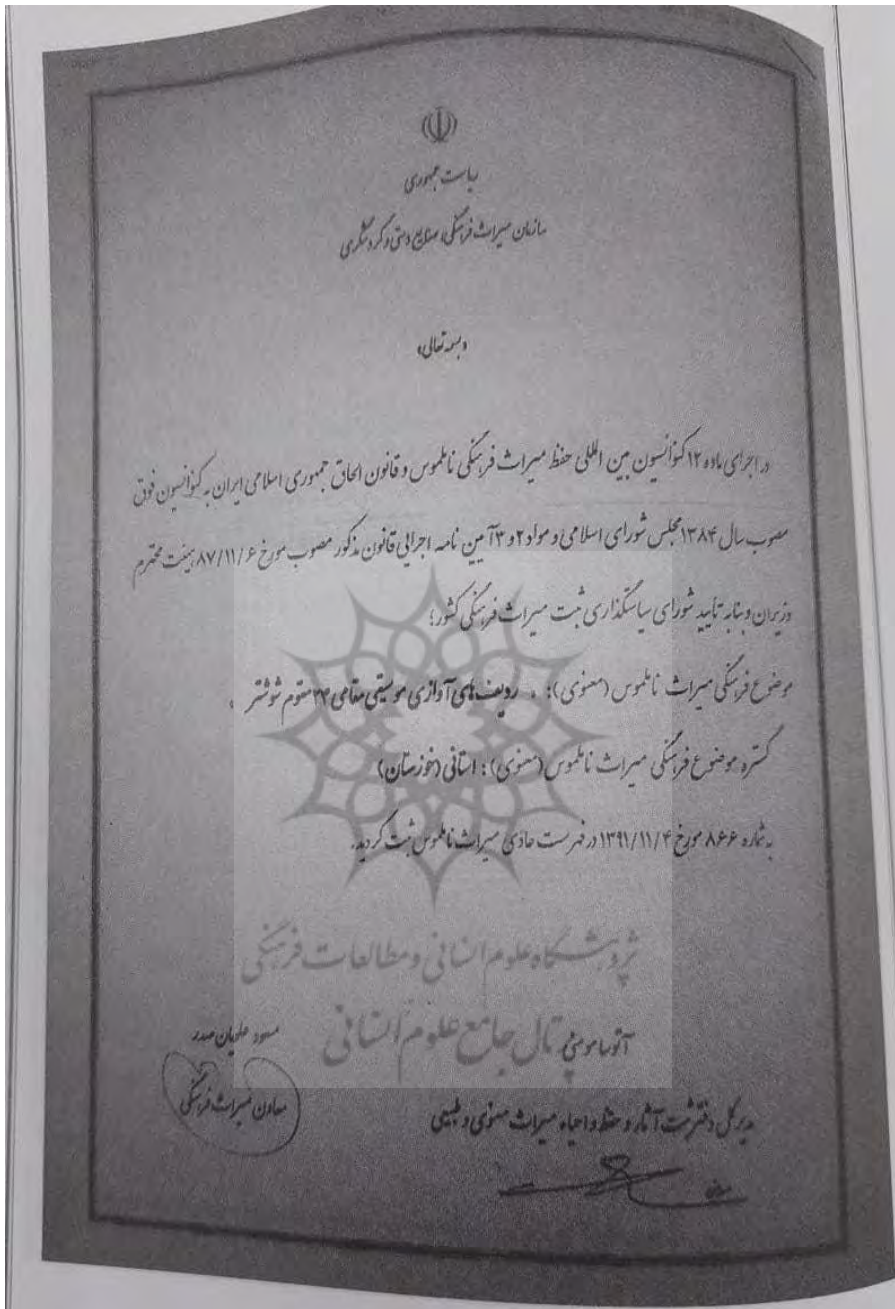 ریاست جمهوری
سازمان میراث فرهنگی، صنایع دستی و گردشگری
«بسمه تعالی»
در اجرای ماده ۱۲ کنوانسیون بین المللی حفظ میراث فرهنگی ناملموس و قانون الحاق جمهوری اسلامی ایران به کنوانسیون فوق
مصوب سال ۱۳۸۴ مجلس شورای اسلامی و مواد ۲ و ۳ آیین نامه اجرایی قانون مذکور مصوب مورخ ۸۷/۱۱/۶ هیئت محترم
وزیران و بنا به تایید شورای سیاستگذاری ثبت میراث فرهنگی کشور؛
موضوع فرهنگی میراث ناملموس (معنوی): « ردیف های آوازی موسیقی مقامی ۲۴ مقوم شوشتر »
گستره موضوع فرهنگی میراث ناملموس (معنوی): استانی (خوزستان)
به شماره ۸۶۶ مورخ ۱۳۹۱/۱۱/۴ در فهرست حاوی میراث ناملموس ثبت گردید.
پژوهشگاه علوم انسانی و مطالعات فرهنگی
پرتال جامع علوم انسانی
آتوسا مومنی
مسعود علویان صدر
مدیر کل دفتر ثبت آثار و حفظ و احیاء میراث معنوی و طبیعی
معاون میراث فرهنگی